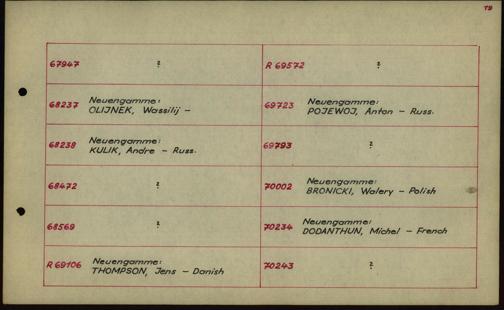 79
67947 ?
R 69572 ?
68237 Neuengamme:
OLIJNEK, Wassilij -
69723 Neuengamme:
POJEWOJ, Anton - Russ.
68238 Neuengamme:
KULIK, Andre - Russ.
69793 ?
68472 ?
70002 Neuengamme:
BRONICKI, Walery - Polish
68569 ?
70234 Neuengamme:
DODANTHUN, Michel - French
R 69106 Neuengamme:
THOMPSON, Jens - Danish
70243 ?